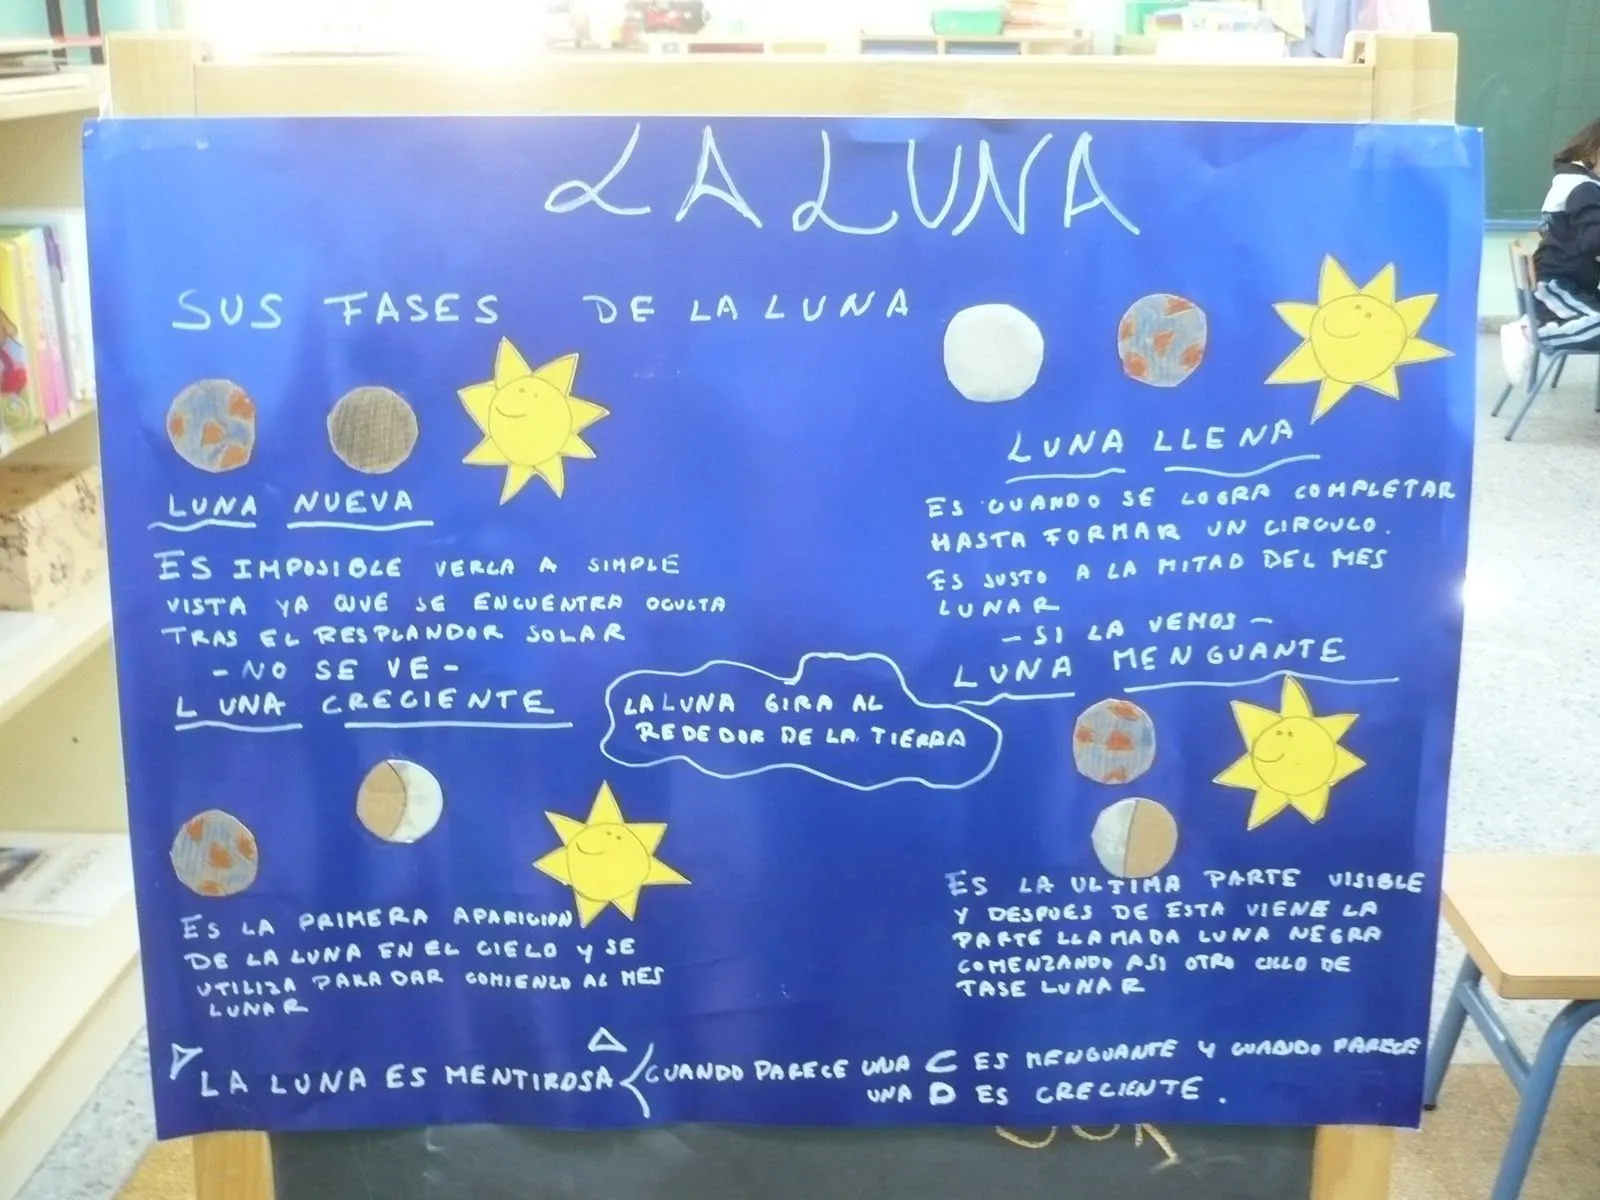 LA LUNA
SUS FASES DE LA LUNA
LUNA NUEVA
ES IMPOSIBLE VERLA A SIMPLE
VISTA YA QUE SE ENCUENTRA OCULTA
TRAS EL RESPLANDOR SOLAR
-NO SE VE-
LUNA CRECIENTE
ES LA PRIMERA APARICION
DE LA LUNA EN EL CIELO Y SE
UTILIZA PARA DAR COMIENZO AL MES
LUNAR
LA LUNA GIRA AL
REDEDOR DE LA TIERRA
LUNA LLENA
ES CUANDO SE LOGRA COMPLETAR
HASTA FORMAR UN CIRCULO.
ES JUSTO A LA MITAD DEL MES
LUNAR
- SI LA VEMOS -
LUNA MENGUANTE
ES LA ULTIMA PARTE VISIBLE
Y DESPUES DE ESTA VIENE LA
PARTE LLAMADA LUNA NEGRA
COMENZANDO ASI OTRO CICLO DE
TASE LUNAR
LA LUNA ES MENTIROSA
CUANDO PARECE UNA C ES MENGUANTE Y CUANDO PARECE
UNA D ES CRECIENTE.